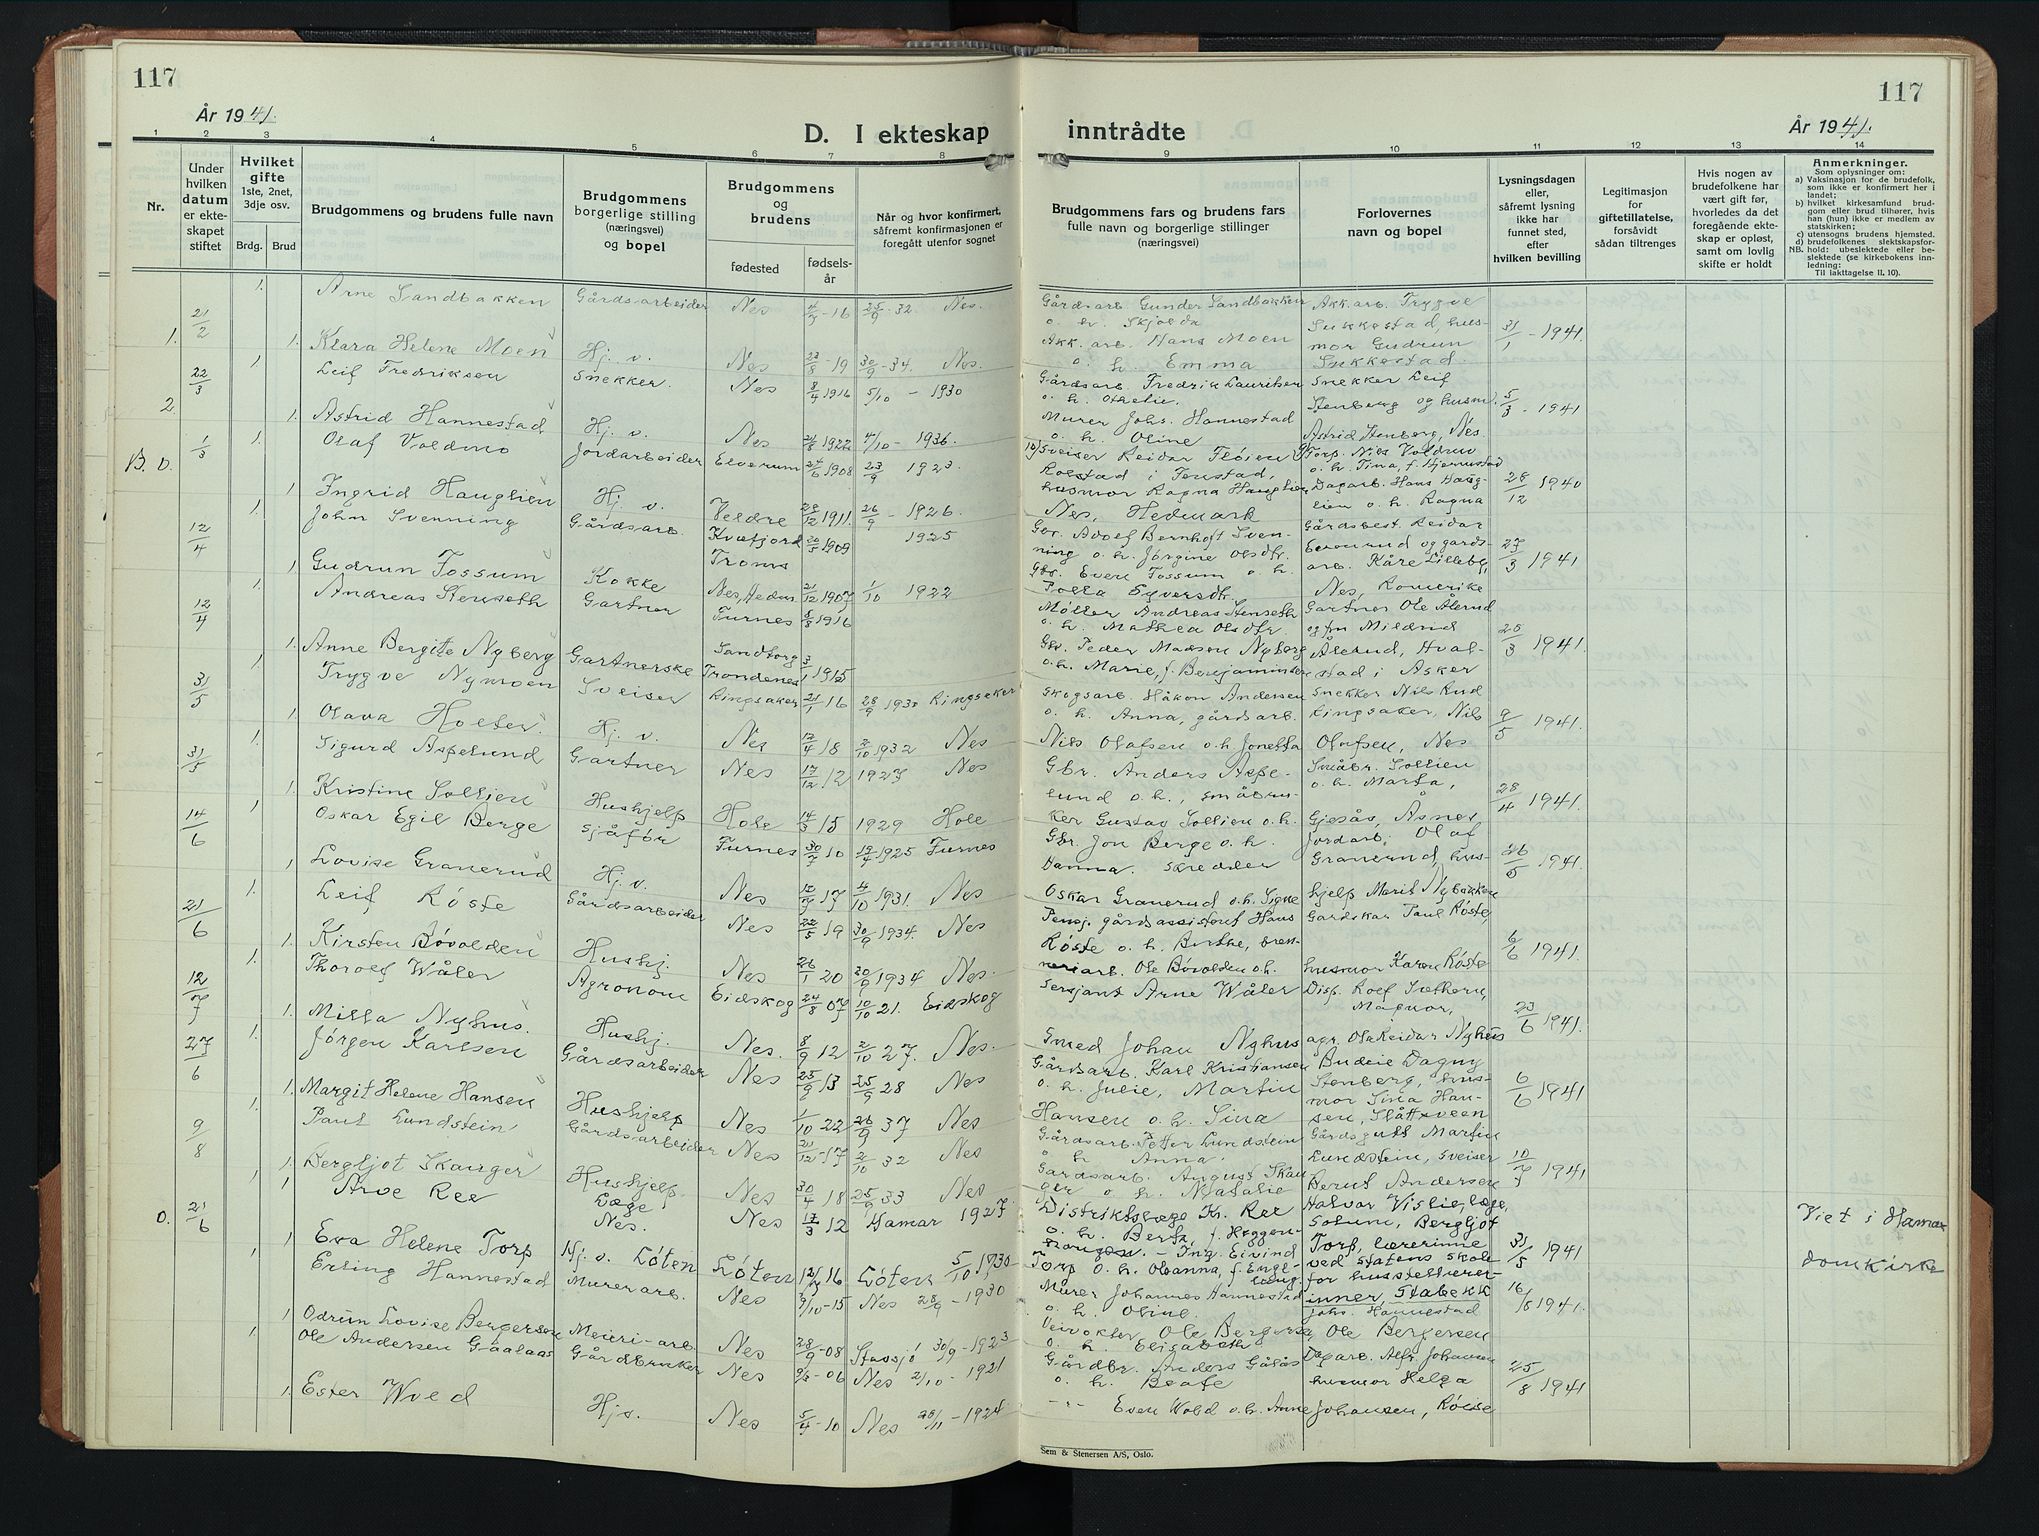 117
117
År 1941.
År 1941.
D. I ekteskap inntrådte
1 2 3 4 5 6 7 8 9 10 11 12 13 14
Nr.
Under hvilken datum er ekteskapet stiftet
Hvilket gifte
1ste, 2net, 3dje osv.
Brdg. Brud
Brudgommens og brudens fulle navn
Brudgommens borgerlige stilling (næringsvei) og bopel
Brudgommens og brudens
fødested
fødselsår
Når og hvor konfirmert, såfremt konfirmasjonen er foregått utenfor sognet
Brudgommens fars og brudens fars fulle navn og borgerlige stillinger (næringsvei)
Forlovernes navn og bopel
Lysningsdagen eller, såfremt lysning ikke har funnet sted, efter hvilken bevilling
Legitimasjon for giftetillatelse, forsåvidt sådan tiltrenges
Hvis nogen av brudefolkene har vært gift før, hvorledes da det foregående ekteskap er opløst, samt om lovlig skifte er holdt
Anmerkninger.
Som oplysninger om:
a) Vaksinasjon for de brudefolk, som ikke er konfirmert her i landet;
b) hvilket kirkesamfund brudgom eller brud tilhører, hvis han (hun) ikke er medlem av statskirken;
c) utensogns brudens hjemsted.
d) brudefolkenes slektskapsforhold: ubeslektede eller beslektede (se kirkebokens innledning:
NB. Til iakttagelse II. 10).
1. 21/2 1. Arne Sandbakken Gårdsarbeider Nes 4/3-16 25/9-32 Nes. Gårdsarb. Gunder Sandbakken o. h. Skjolda Akk.arb. Trygve Snekkestad, husmor Gudrun Snekkestad. 31/1-1941.
1. Klara Helene Moen Hj. v. Nes 23/8-19 30/9-34. Nes. Akk. arb. Hans Moen o. h. Emma
2 22/3 1. Leif Fredriksen Snekker. Nes 8/4 1916 5/10-1930 Gårdsarb. Fredrik Lauritsen o. h. Othelie. Snekker Leif Stenberg og husm. Astrid Stenberg, Nes. 5/3-1941
1. Astrid Hannestad Hj. v. Nes 21/8 1922 4/10-1936. Murer Johs. Hannestad o. h. Oline
B. v. 1/3 1. Olaf Voldmo Jordarbeider Elverum 24/6 1908 23/9 1923. 28/12 1940
1 Ingrid Hauglien Hj. v. Veldre 28/12 1911. 26/9-1926. husmor Ragna Hauglien Nes, Hedmark Dagarb. Hans Hauglien o. h. Ragna
12/4 1 John Svenning Gårdsarb. Kvæfjord Troms 20/5 1909 1925 Gbr. Adolf Bernhoft Svenning o. h. Jørgine Olsdtr. Gårdsbest. Reidar 27/3 1941
1. Gudrun Fossum Kokke Nes, Hedm. 21/12 1907 1/10 1922 Gbr. Even Fossum o. h. arb. Kåre Lilleberg, Nes, Romerike
12/4 1. Andreas Stenseth Gartner Furnes 5/8 1916 Møller Andreas Stenseth o. h. Mathea Olsdtr. Gartner Ole Ålerud og fru Mildrid Ålerud, Hvalstad i Asker 25/3 1941.
1. Anne Bergite Nyberg Gartnerske Sandtorg Trondenes 3/1 1915 Gbr. Peder Madsen Nyberg o. h. Marie, f. Benjaminsen
31/5 1. Trygve Nymoen Sveiser Ringsaker 21/1 16 28/9 1930 Ringsaker Skogsarb. Håkon Andersen o. h. Anna, gårdsarb. Snekker Nils Rud Ringsaker, Nils Olafsen, Nes 9/5 1941.
1. Olava Holter. Hj. v. Nes 17/4 18 2/10 1932 Nes Nils Olafsen o. h. Jonetta
31/5 1. Sigurd Aspelund Gartner Nes 17/12 12 1927 Nes Gbr. Anders Aspelund o. h., småbru- Småbr. Sollien o. h. Marta, Gjesås, Åsnes 28/4 1941.
1. Kristine Sollien Hushjelp Hole 14/3 15 1929 Hole ker Gustav Sollien o. h.
14/6 1 Oskar Egil Berge Sjåfør Furnes 30/7 10 19/4 1925 Furnes Gbr. Jon Berge o. h. Hanna. Skredder Jordarb. Olaf Granerud, hushjelp Marit Nybakken 26/5 1941.
1 Lovise Granerud Hj. v. Nes 12/9 17 4/10 1931. Nes Oskar Granerud o. h. Signe
21/6 1. Leif Røste Gårdsarbeider Nes 22/5 19 30/9 1934. Nes Pensj. gårdsassistent Hans Røste o. h. Berthe, bren- Gardskar Paul Røste, husmor Karen Røste 6/6 1941.
1. Kirsten Bøvolden Hushj. Nes 26/1 20 30/9 1934 Nes. neriarb. Ole Bøvolden o. h.
12/7 1. Thorolf Wåler Agronom Eidskog 24/8 07 10/10 21. Eidskog Sersjant Arne Wåler Disp. Rolf Sæthern, Magnor, 23/6 1941.
1. Milla Nyhus. Hushj. Nes. 8/9 12 2/10 27. Nes. Smed Johan Nyhus agr. Ola Reidar Nyhus
27/6 1. Jørgen Karlsen Gårdsarbeider Nes 25/9 13 25/9 28 Nes Gårdsarb. Karl Kristiansen o. h. Julie, Martin Budeie Dagny Stenberg, husmor Sina Hansen, Slåttsveen 6/6 1941
1. Margit Helene Hansen Hushjelp Nes 1/10 22 26/9 37 Nes Hansen o. h. Sina
9/8 1. Paul Lundstein Gårdsarbeider Nes 21/12-17 2/10 32 Nes Gårdsarb. Petter Lundstein o h Anna. Gårdsgutt Martin Lundstein, sveiser Bernt Andersen 10/7 1941
1. Bergljot Skauger Hushjelp. Nes 30/4 18 25/9 33 Nes Gårdsarb. August Skauger o. h. Natalie
o. 21/6 1 Arve Ree Læge Nes. Nes 17/3 12 Hamar 1927. Distriktslæge Kr. Ree o. h. Berta, f. Halvar Vislie, læge, Solum, Bergljot Torp, lærerinne ved statens skole for husstellærerinner, Stabekk 31/5 1941 Viet i Hamar domkirke
1 Eva Helene Torp Hj. v. Løten Løten 12/7 16 Løten 5/10 1930 Ing. Eivind Torp o. h. Olianna, f. Engl-
1 Erling Hannestad Murerarb. Nes 9/10-15 Nes 28/9-1930 Murer Johannes Hannestad o. h. Oline. Johs. Hannestad 16/8 1941.
1 Odrun Lovise Bergersen Meieri-arb. Nes 28/9-08 Stavsjø 30/9-1923 Veivokter Ole Bergersen o. h. Elisabeth Ole Bergersen
1. Ole Andersen Gaalaas Gårdbruker Nes -06 Nes 2/10-1921 Gårdbr. Anders Gålås o. h. Beate Dagarb. Alfr. Johansen husmor Helga Johansen, Røise 25/8 1941
1. Ester Wold Hjv. Nes 5/4-10 Nes -1924. -"- Even Wold o. h. Anne
Sem & Stenersen A/S, Oslo.